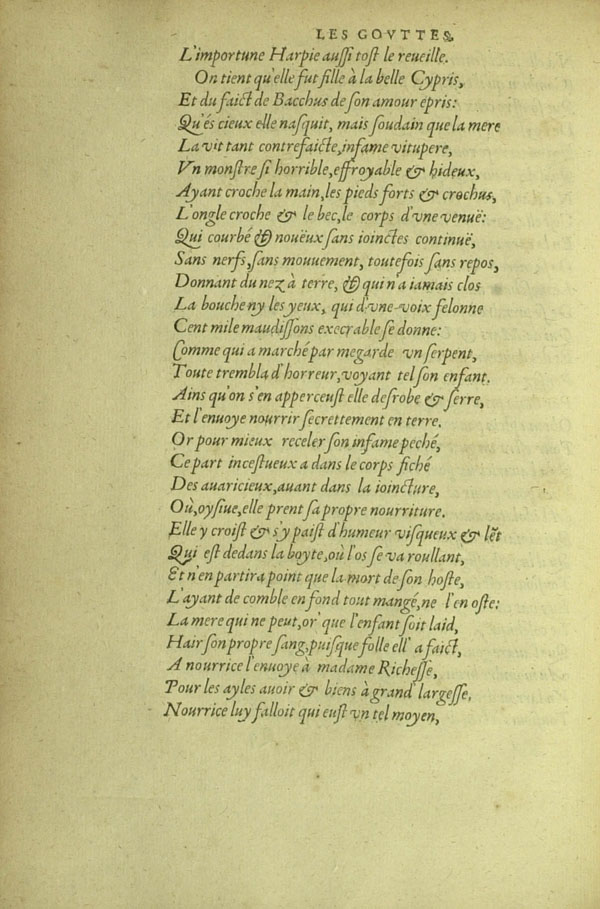 LES GOVTTES,
L'importune Harpie auſſi toſt le reueille.
On tient qu'elle fut fille à la belle Cypris,
Et du faict de Bacchus de ſon amour epris:
Qu'és cieux elle naſquit, mais ſoudain que la mere
La vit tant contrefaicte, infame vitupere,
Vn monſtre ſi horrible, effroyable & hideux,
Ayant croche la main, les pieds forts & crochus,
L'ongle croche & le bec, le corps d'vne venuë:
Qui courbé & nouëux ſans ioinctes continuë,
Sans nerfs, ſans mouuement, toutefois ſans repos,
Donnant du nez à terre, & qui n'a iamais clos
La bouche ny les yeux, qui d'vne voix felonne
Cent mile maudiſſons execrable ſe donne:
Comme qui a marché par megarde vn ſerpent,
Toute trembla d'horreur, voyant tel ſon enfant.
Ains qu'on s'en apperceuſt elle deſrobe & ſerre,
Et l'enuoye nourrir ſecrettement en terre.
Or pour mieux receler ſon infame peché,
Ce part inceſtueux a dans le corps fiché
Des auaricieux, auant dans la ioincture,
Où, oyſiue, elle prent ſa propre nourriture.
Elle y croiſt & s'y paiſt d'humeur viſqueux & lẽt
Qui eſt dedans la boyte, où l'os ſe va roullant,
Et n'en partira point que la mort de ſon hoſte,
L'ayant de comble en fond tout mangé, ne l'en oſte:
La mere qui ne peut, or' que l'enfant ſoit laid,
Hair ſon propre ſang, puiſque folle ell' a faict,
A nourrice l'enuoye à madame Richeſſe,
Pour les ayles auoir & biens à grand' largeſſe,
Nourrice luy falloit qui euſt vn tel moyen,